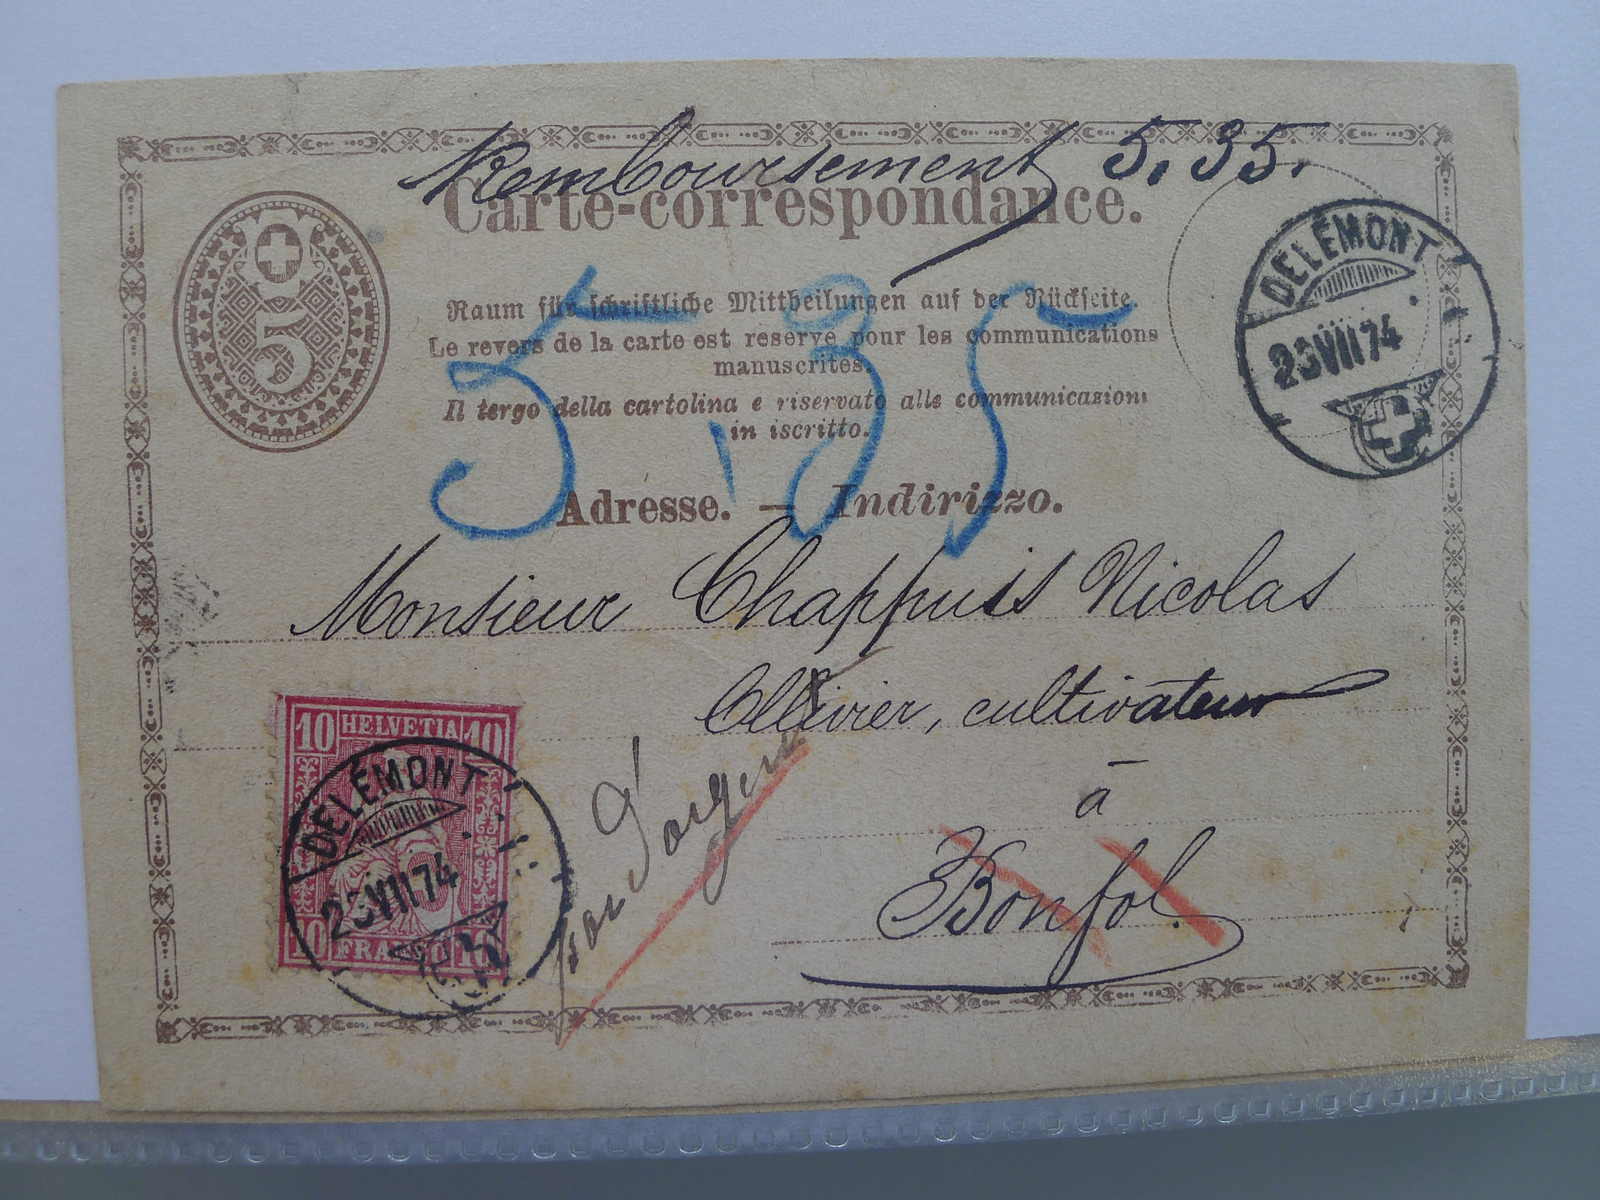 Remboursement 5.35.
Carte-correspondance.
5
5.35
Raum für schriftliche Mittheilungen auf der Rückseite.
Le revers de la carte est reservé pour les communications
manuscrites.
Il tergo della cartolina e riservato alle communicazioni
in iscritto.
DELÉMONT
23 VII 74
Adresse. — Indirizzo.
Monsieur Chappuis Nicolas
Ollivier, cultivateur
à
Bonfol.
10 HELVETIA 10
10 FRANCO 10
DELÉMONT
23 VII 74